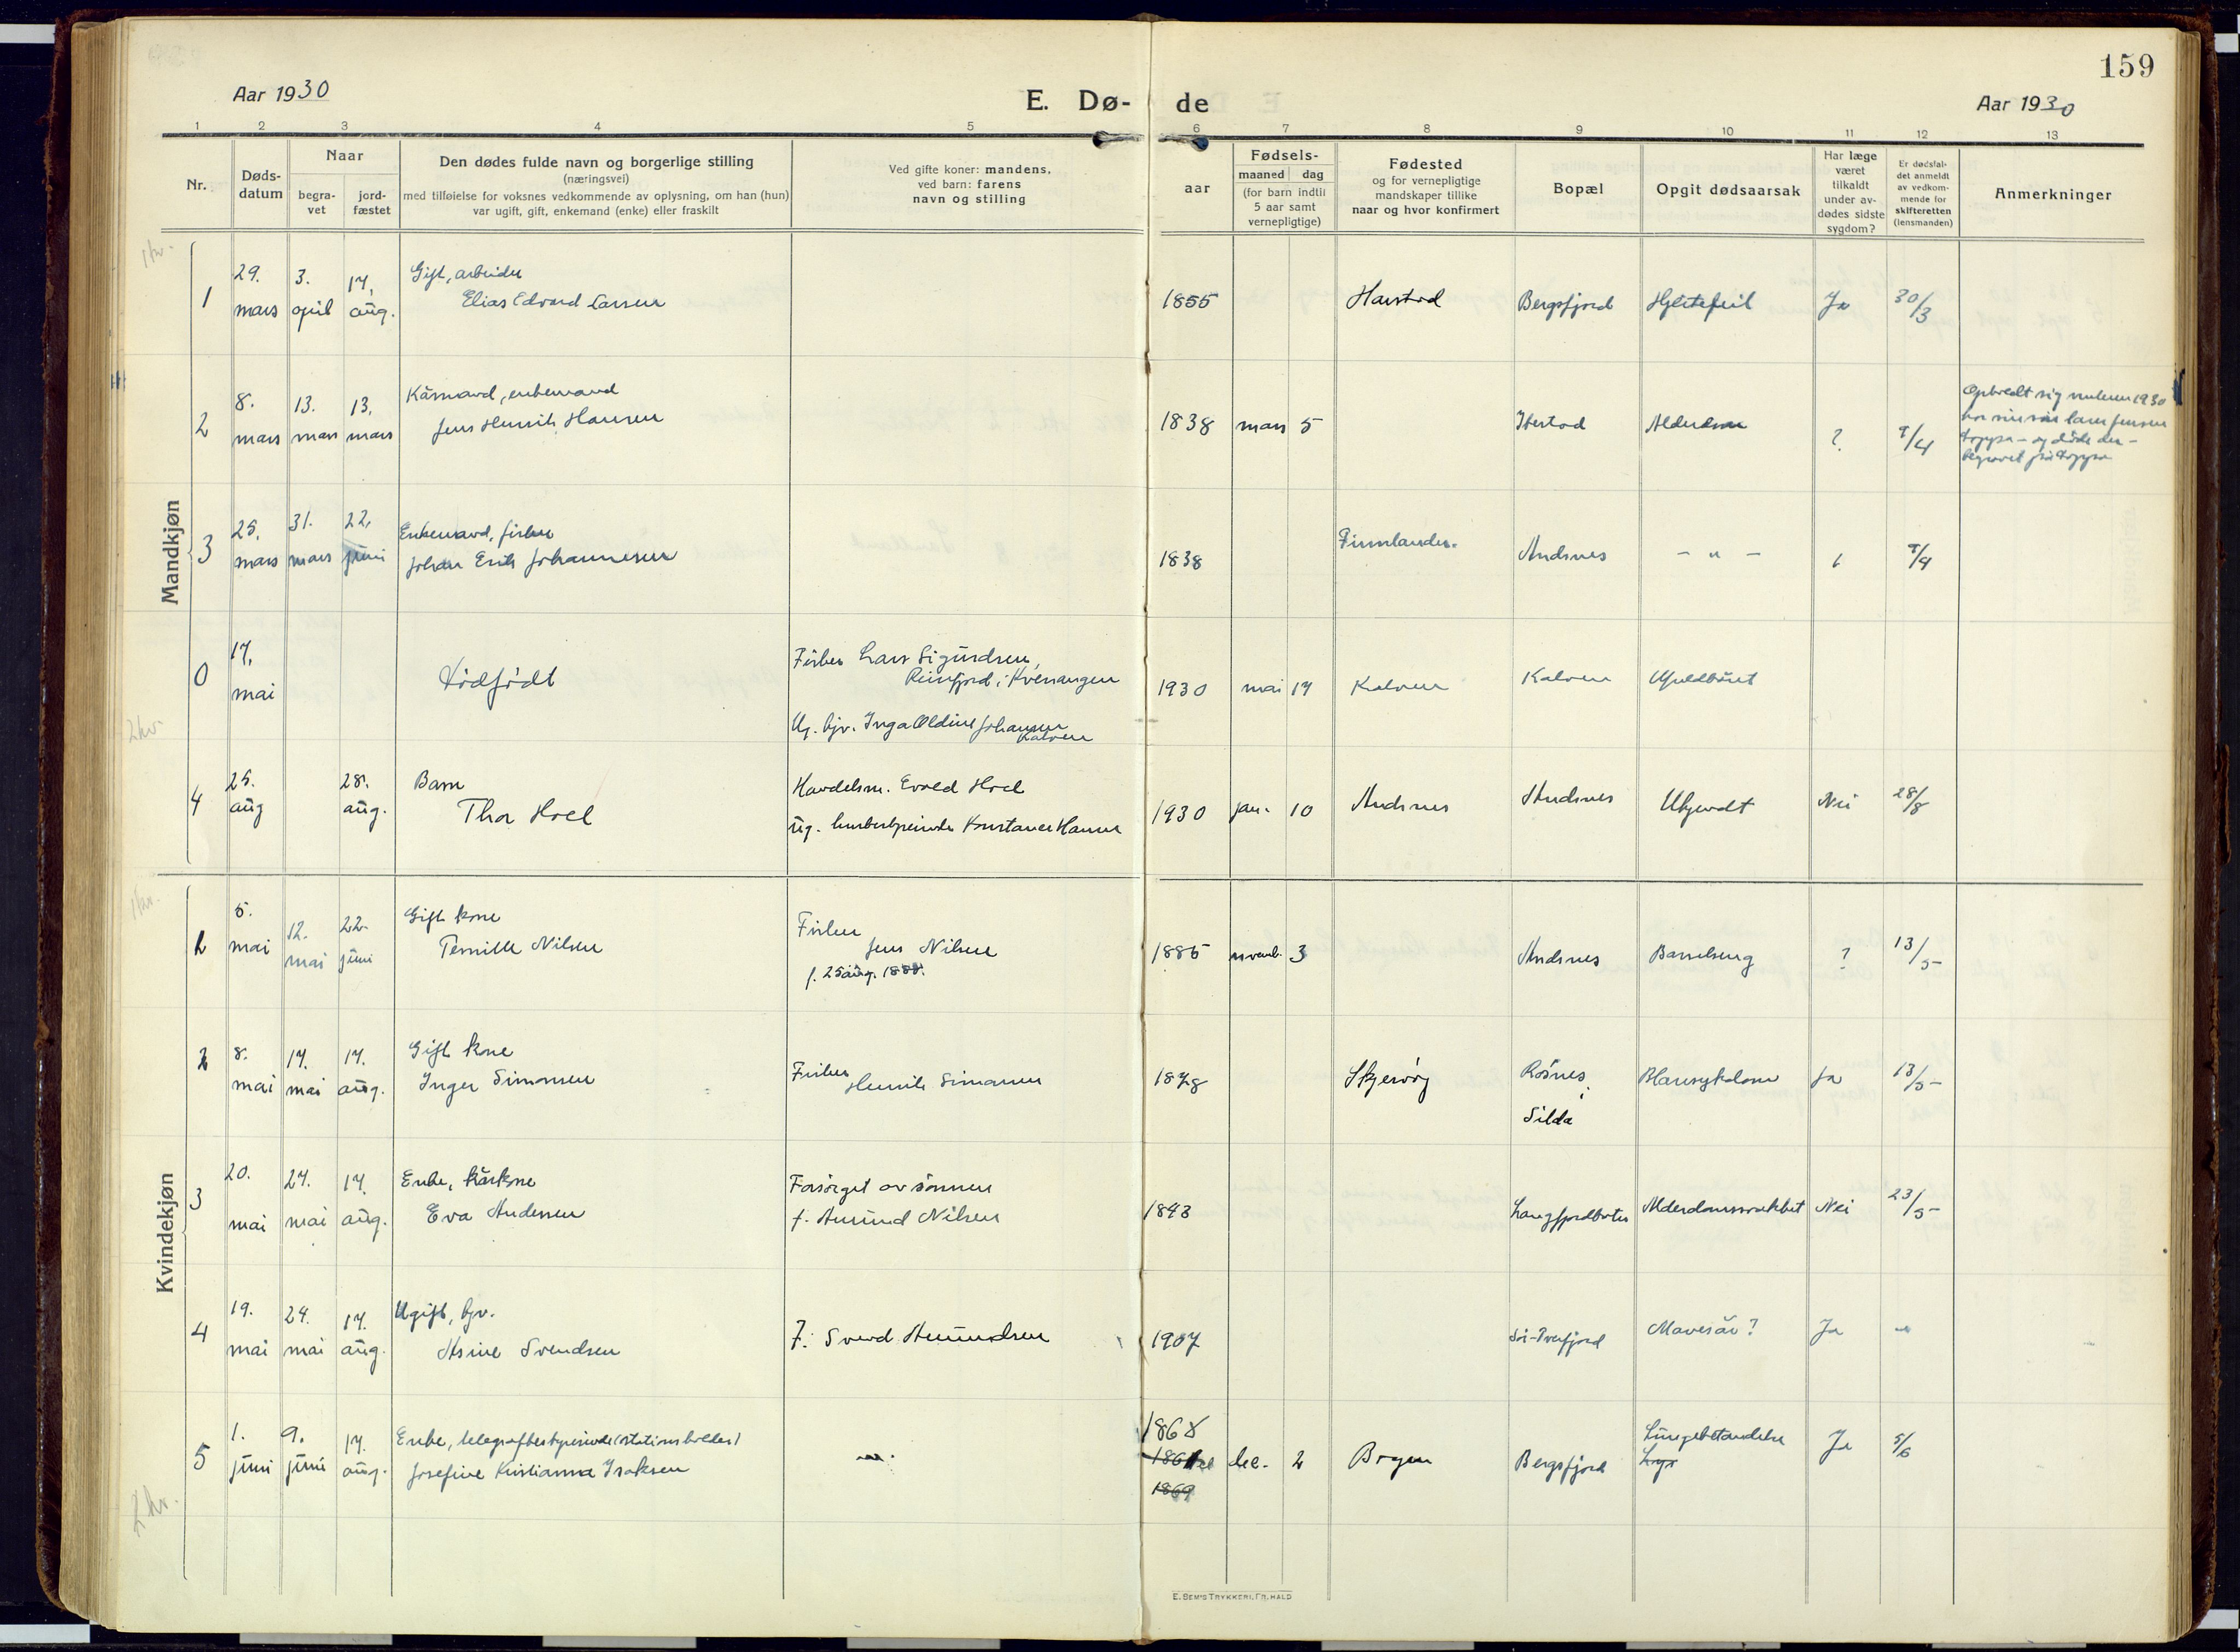 159
Aar 1930
E. Dø- de
Aar 1930
1 2 3 4 5 6 7 8 9 10 11 12 13
Nr.
Døds-
datum
Naar
begra-
vet
jord-
fæstet
Den dødes fulde navn og borgerlige stilling
(næringsvei)
med tilføielse for voksnes vedkommende av oplysning, om han (hun)
var ugift, gift, enkemand (enke) eller fraskilt
Ved gifte koner: mandens,
ved barn: farens
navn og stilling
aar
Fødsels-
maaned dag
(for barn indtil
5 aar samt
vernepligtige)
Fødested
og for vernepligtige
mandskaper tillike
naar og hvor konfirmert
Bopæl
Opgit dødsaarsak
Har læge
været
tilkaldt
under av-
dødes sidste
sygdom?
Er dødsfal-
det anmeldt
av vedkom-
mende for
skifteretten
(lensmanden)
Anmerkninger
Mandkjøn
1 kr.
1 29. mars 3. april 17. aug.
Gift, arbeider
Elias Edvard Larsen
1855 Harstad Bergsfjord Hjertefeil Ja 30/3
2 8. mars 13. mars 13. mars
Kårmand, enkemand
Jens Henrik Hansen
1838 mars 5 Ibestad Alderdom ? 9/4
Opholdt sig vinteren 1930
hos sin søn Lars Jensen
Loppa - og døde der -
begravet på Loppa
3 25. mars 31. mars 22. juni
Enkemand, fisker
Johan Erik Johannesen
1838 Finnlander. Andsnes - " - 9/4
0 17. mai
Dødfødt
Fisker Lars Sigurdsen,
Reinfjord i Kvænangen
Ug. hjv. Inga Oldine Johansen
Kalven
1930 mai 17 Kalven Kalven Ufuldbåret
2 kr
4 25. aug 28. aug.
Barn
Thor Hoel
Handelsm. Evald Hoel
ug. Konstance Hansen
1930 jan. 10 Andsnes Andsnes Ukjendt Nei 28/8
Kvindekjøn
1 kr.
1 5. mai 12. mai 22. juni
Gift kone
Pernille Nilsen
Fisker
Jens Nilsen
f. 25 aug. 1888.
1886 novemb. 3 Andsnes Barselseng ? 13/5
2 8. mai 17. mai 17. aug.
Gift kone
Inger Simonsen
Fisker
Henrik Simonsen
1878 Skjervøy Rösnes i Silda Blæresykdom Ja 13/5
3 20. mai 27. mai 17. aug.
Enke, kårkone
Eva Andersen
Forsørget av sønnen
f. Amund Nilsen
1843 Langfjordbotn Alderdomssvakhet Nei 23/5
4 19. mai 24. mai 17. aug.
Ugift, hjv.
Asine Svendsen
F: Svend Amundsen
1907 Sör-Tverfjord Mavesår? Ja
5 1. juni 9. juni 17. aug.
Enke, telegrafbestyrerinde (stationsholder)
Josefine Kristianna Isaksen
1868
1869
dec. 2 Bogen Bergsfjord Lungebetændelse Ja 5/6
2 kr.
E. SEM'S TRYKKERI, FR. HALD